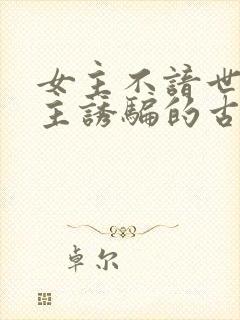 女主不諳世
主誘騙的古
卓尔